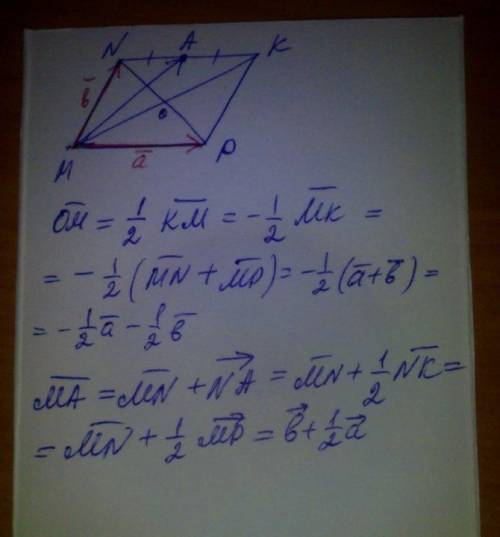 N A K
b̄
O
M ā P
O͞M = 1/2 K͞M = -1/2 M͞K =
= -1/2 (M͞N + M͞P) = -1/2 (ā+b̄) =
= -1/2 ā - 1/2 b̄
M͞A = M͞N + N⃗A = M͞N + 1/2 N͞K =
= M͞N + 1/2 M⃗P = b⃗ + 1/2 a⃗